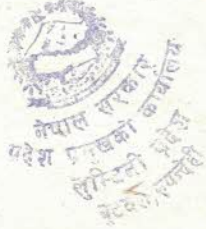 नेपाल सरकार
प्रदेश प्रमुखको कार्यालय
लुम्बिनी प्रदेश
बुटवल, रुपन्देही